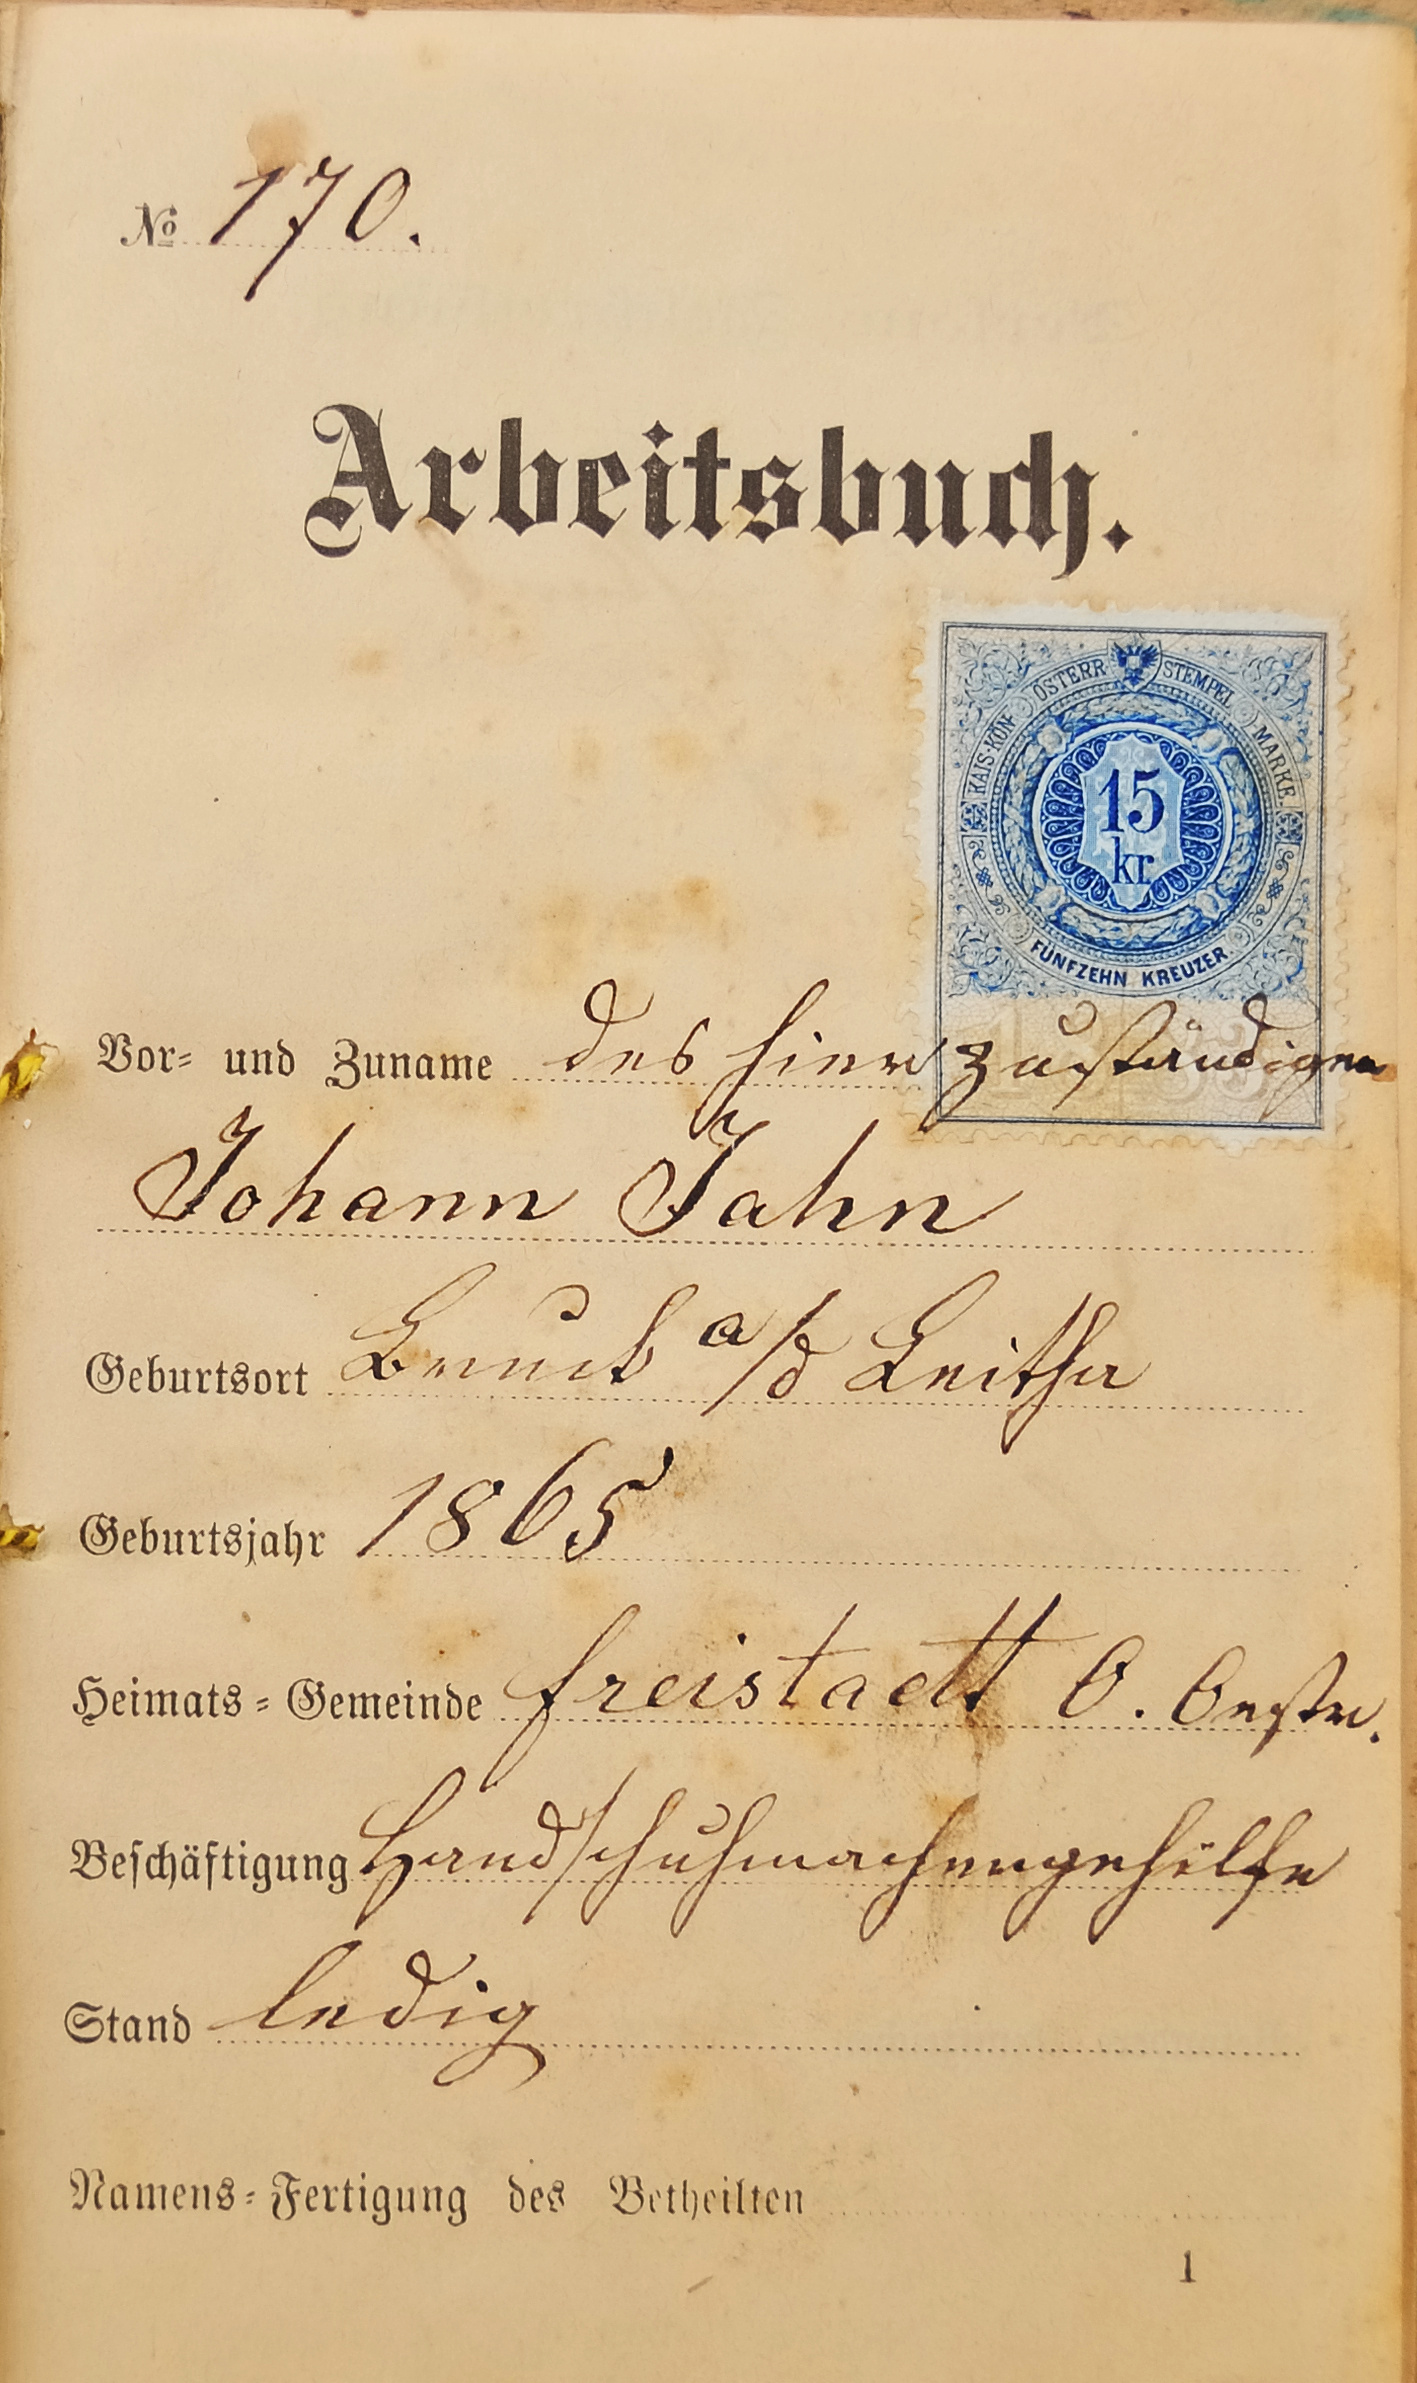 No 170.
Arbeitsbuch.
KAIS. KÖN. ÖSTERR. STEMPEL MARKE.
15
kr
FÜNFZEHN KREUZER
Vor- und Zuname des hier zuständigen
Johann Jahn
Geburtsort Bruck a/d Leitha
Geburtsjahr 1865
Heimats-Gemeinde Freistadt O. Oestr.
Beschäftigung Handschuhmachergehilfe
Stand ledig
Namens-Fertigung des Betheilten
1